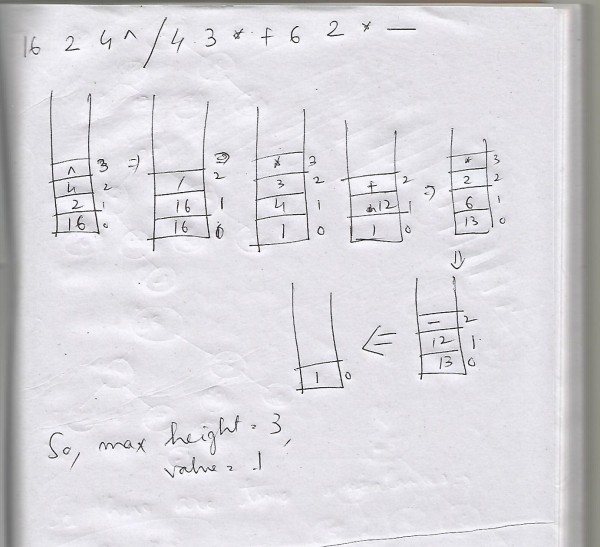 16 2 4 ^ / 4 3 * + 6 2 * —
^ 3 ⇒ / 2 ⇒ * 3 + 2 ⇒ * 3
4 2 16 1 3 2 12 1 2 2
2 1 16 0 4 1 1 0 6 1
16 0 1 0 13 0
⇓
— 2
12 1
1 0 ⇐ 13 0
So, max height = 3,
value = 1